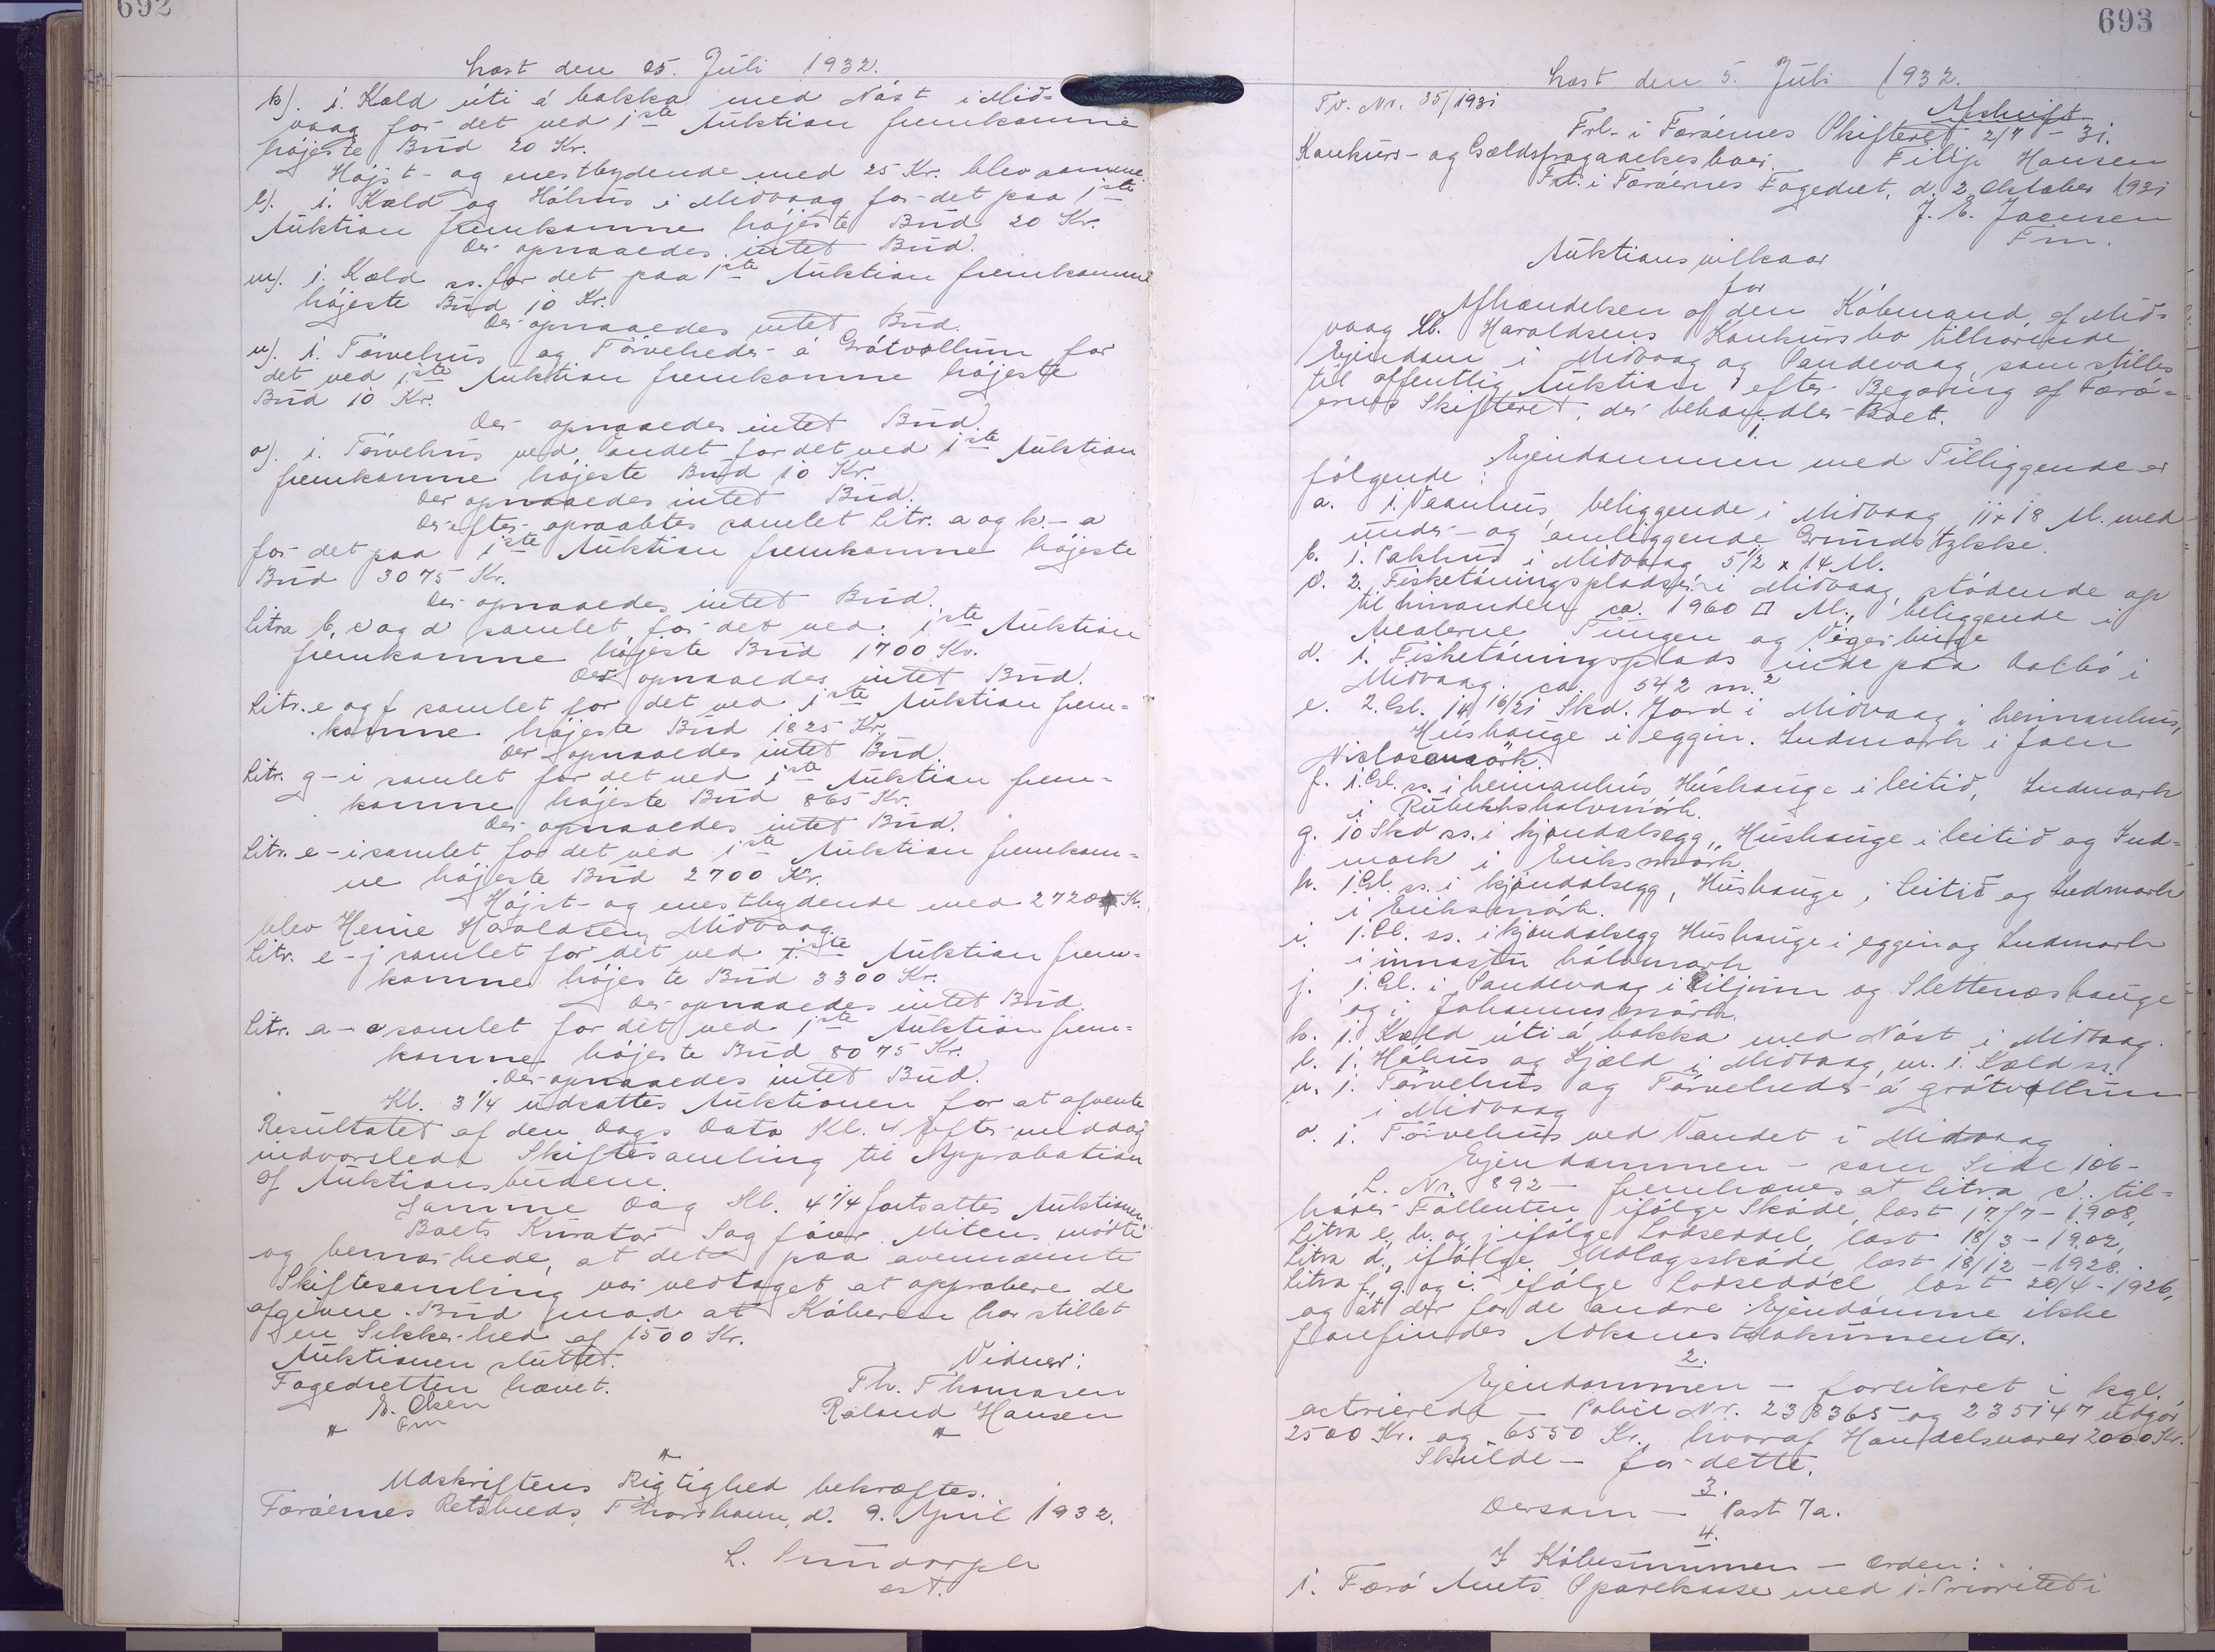 692
Læst den 25. Juli 1932.
k). 1. Kæld úti á bakka med Nást i Mid-
vaag for det ved 1ste Auktion fremkomne
højeste Bud 20 Kr.
Højst- og enestbydende med 25 Kr. blev samme.
l). 1. Kæld og Hóhus i Midvaag for det paa 1ste
Auktion fremkomne højeste Bud 20 Kr.
Der opnaaedes intet Bud.
m). 1. Kæld ss. for det paa 1ste Auktion fremkomne
højeste Bud 10 Kr.
Der opnaaedes intet Bud.
n). 1. Törvehus og Törveheder á Grótvollum for
det ved 1ste Auktion fremkomne højeste
Bud 10 Kr.
Der opnaaedes intet Bud.
o). 1. Törvehus ved Vandet for det ved 1ste Auktion
fremkomne højeste Bud 10 Kr.
Der opnaaedes intet Bud.
Derefter opraabtes samlet Litr. a og k - o
for det paa 1ste Auktion fremkomne højeste
Bud 3075 Kr.
Der opnaaedes intet Bud.
Litra b, c og d samlet for det ved 1ste Auktion
fremkomne højeste Bud 1700 Kr.
Der opnaaedes intet Bud.
Litr. e og f samlet for det ved 1ste Auktion frem-
komne højeste Bud 1825 Kr.
Der opnaaedes intet Bud.
Litr. g - i samlet for det ved 1ste Auktion frem-
komne højeste Bud 865 Kr.
Der opnaaedes intet Bud.
Litr. e - i samlet for det ved 1ste Auktion fremkom-
ne højeste Bud 2700 Kr.
Højst- og enestbydende med 2720 Kr.
blev Heine Haraldsen, Midvaag.
Litr. e - j samlet for det ved 1ste Auktion frem-
komne højeste Bud 3300 Kr.
Der opnaaedes intet Bud.
Litr. a - o samlet for det ved 1ste Auktion frem-
komne højeste Bud 8075 Kr.
Der opnaaedes intet Bud.
Kl. 3 1/4 udsattes Auktionen for at afvente
Resultatet af den Dags Dato Kl. 4 Eftermiddag
indvarslede Skiftesamling til Approbation
af Auktionsbudene.
Samme Dag Kl. 4 1/4 fortsattes Auktionen.
Boets Kurator Sagfører Mitens mødte
og bemærkede, at det paa ovennævnte
Skiftesamling var vedtaget at approbere de
afgivne Bud mod at Køberen har stillet
en Sikkerhed af 1500 Kr.
Auktionen sluttet. Vidner:
Fogedretten hævet. Th. Thomasen
E. Olsen Roland Hansen
Fm
Udskriftens Rigtighed bekræftes.
Færøernes Retskreds, Thorshavn, d. 9. April 1932.
cst.
693
Læst den 5. Juli 1932.
Fv. Nr. 35/1931
Afskrift
Frl. i Færøernes Skifteret 2/7 - 31.
Konkurs- og Gældsfragaaelsesboer. Filip Hansen
Frt. i Færøernes Fogedret, d. 2 Oktober 1931
J. E. Joensen
Fm.
Auktionsvilkaar
for
Afhændelsen af den Købmand af Mid-
vaag Haraldsens Konkursbo tilhørende
Ejendom i Midvaag og Sandevaag, som stilles
til offentlig Auktion efter Begæring af Færø-
ernes Skifteret, der behandler Boet.
1.
Ejendommen med Tilliggende er
følgende:
a. 1. Vaanhus, beliggende i Midvaag 11 x 18 Al. med
under- og omliggende Grundstykke.
b. 1. Pakhus i Midvaag 5 1/2 x 14 Al.
c. 2. Fisketörringspladser i Midvaag, stødende op
til hinanden ca. 1960 □ Al., beliggende i
Mealerne Tungen og
d. 1. Fisketörringsplads inde paa Dalbø i
Midvaag. ca. 542 m.²
e. 2. Gl. 14 16/21 Skd. Jord i Midvaag i heimanhus,
Húshauge i eggin. Indmark i Joen
Niclasenmörk.
f. 1. Gl. ss. i heimanhús, Húshauge i leitid, Indmark
i Rúbekkshalvmörk.
g. 10 Skd ss. i kjóndalsegg, Húshauge i leitid og Ind-
mark i Eriksmörk.
h. 1. Gl. ss. i kjóndalsegg, Húshauge i leitid og Indmark
i Eriksmörk.
i. 1. Gl. ss. i kjóndalsegg Húshauge i eggin og Indmark
i innastu hálvmörk
j. 1. Gl. i Sandevaag i Giljum og Slettenæshauge
og i Johannusmörk.
k. 1. Kæld úti á bakka med Nóst i Midvaag.
l. 1. Hóhus og Kjæld i Midvaag, m. 1. Kæld ss.
n. 1. Törvehus og Törveheder á grótvøllum
i Midvaag
o. 1. Törvehus ved Vandet i Midvaag
Ejendommen - som Side 106 -
L. Nr. 892 - fremhæves at Litra c. til-
hører Fallenten ifølge Skøde, læst 17/7 - 1908,
Litra e, h. og j ifølge Lodseddel, læst 18/3 - 1902,
Litra d, ifølge Udlægsskøde, læst 18/12 - 1928.
Litra f, g. og i. ifølge Lodseddel læst 20/4 - 1926,
og at der for de andre Ejendomme ikke
forefindes Adkomstdokumenter.
2.
Ejendommen - forsikret i kgl.
octrierede - Police Nr. 238365 og 235147 udgør
2500 Kr. og 6550 Kr., hvoraf Handelsvarer 2000 Kr.
Skulde - for dette.
3.
Dersom - Post 7a.
4.
I Købesummen - Orden:
1. Færø Amts Sparekasse med 1. Prioritet i